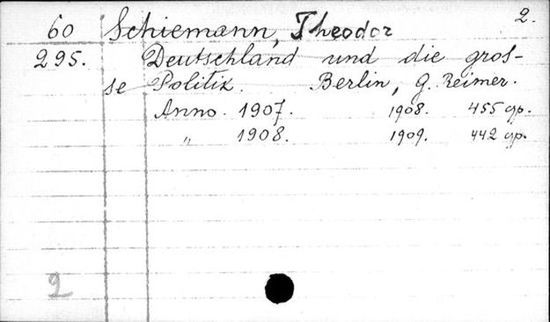 2.
60 Schiemann, Theodor
295. Deutschland und die gros-
se Politik. Berlin, G. Reimer.
Anno 1907. 1908. 455 pp.
„ 1908. 1909. 442 pp.
2